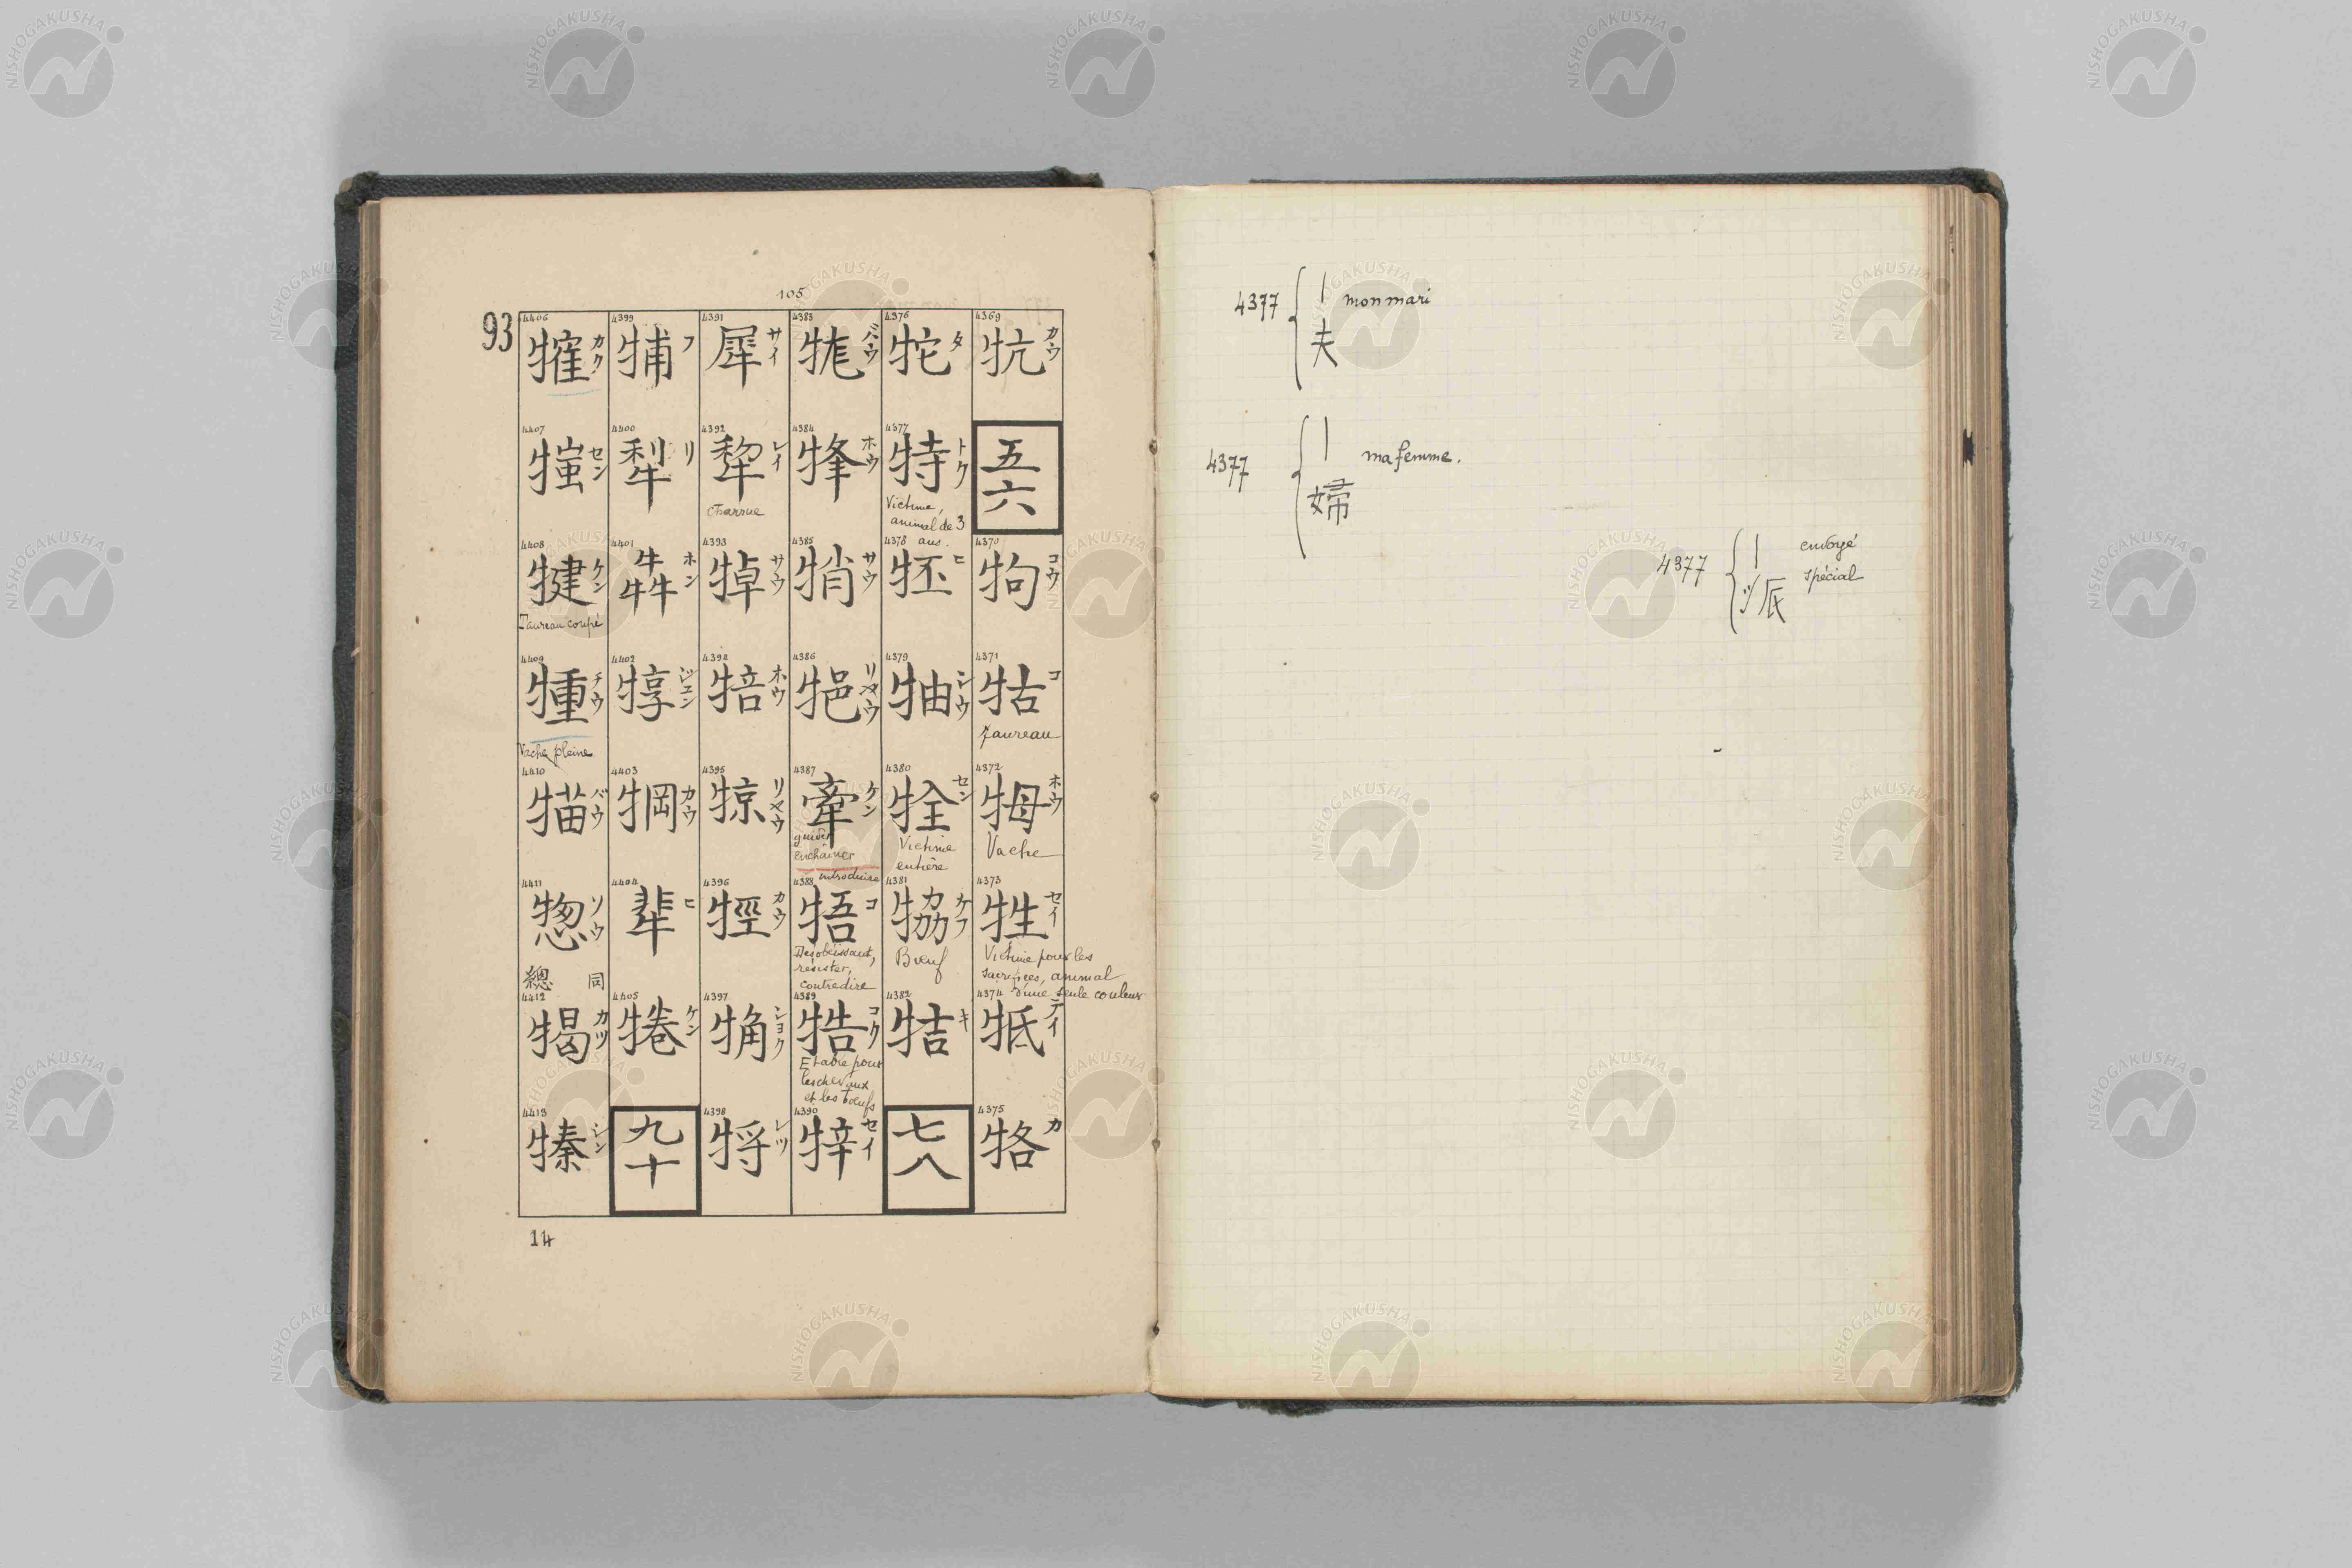 105
93
4369 牨 カウ
五六
4370 物 コウ
4371 牯 コ
Taureau
4372 牳 ホウ
Vache
4373 牲 セイ
Victime pour les
sacrifices, animal
d'une seule couleur
4374 牴 テイ
4375 㸵 カ
4376 牠 タ
4377 特 トク
Victime,
animal de 3
ans.
4378 㸬 ヒ
4379 牰 シウ
4380 牷 セン
Victime
entière
4381 㹂 ケフ
Bœuf
4382 㸵 キ
七八
4383 牻 バウ
4384 㸼 ホウ
4385 㹀 サウ
4386 リヤウ
4387 牽 ケン
guider
enchaîner
introduire
4388 牾 コ
Desobéissant,
résister,
contredire
4389 牿 コク
Etable pour
les chevaux
et les bœufs
4390 セイ
4391 犀 サイ
4392 犂 レイ
Charrue
4393 サウ
4394 犃 ホウ
4395 㹁 リヤウ
4396 牼 カウ
4397 ショク
4398 㸹 レツ
4399 㹀 フ
4400 犁 リ
4401 犇 ホン
4402 犉 ジユン
4403 犅 カウ
4404 輩 ヒ
4405 犈 ケン
九十
4406 㹊 カク
4407 セン
4408 犍 ケン
Taureau coupé
4409 㹐 チウ
Vache pleine
4410 㹈 バウ
4411 ソウ
總 同
4412 犗 カツ
4413 シン
14
4377 { | mon mari
夫
4377 { | ma femme.
婦
4377 { | envoyé
派 spécial